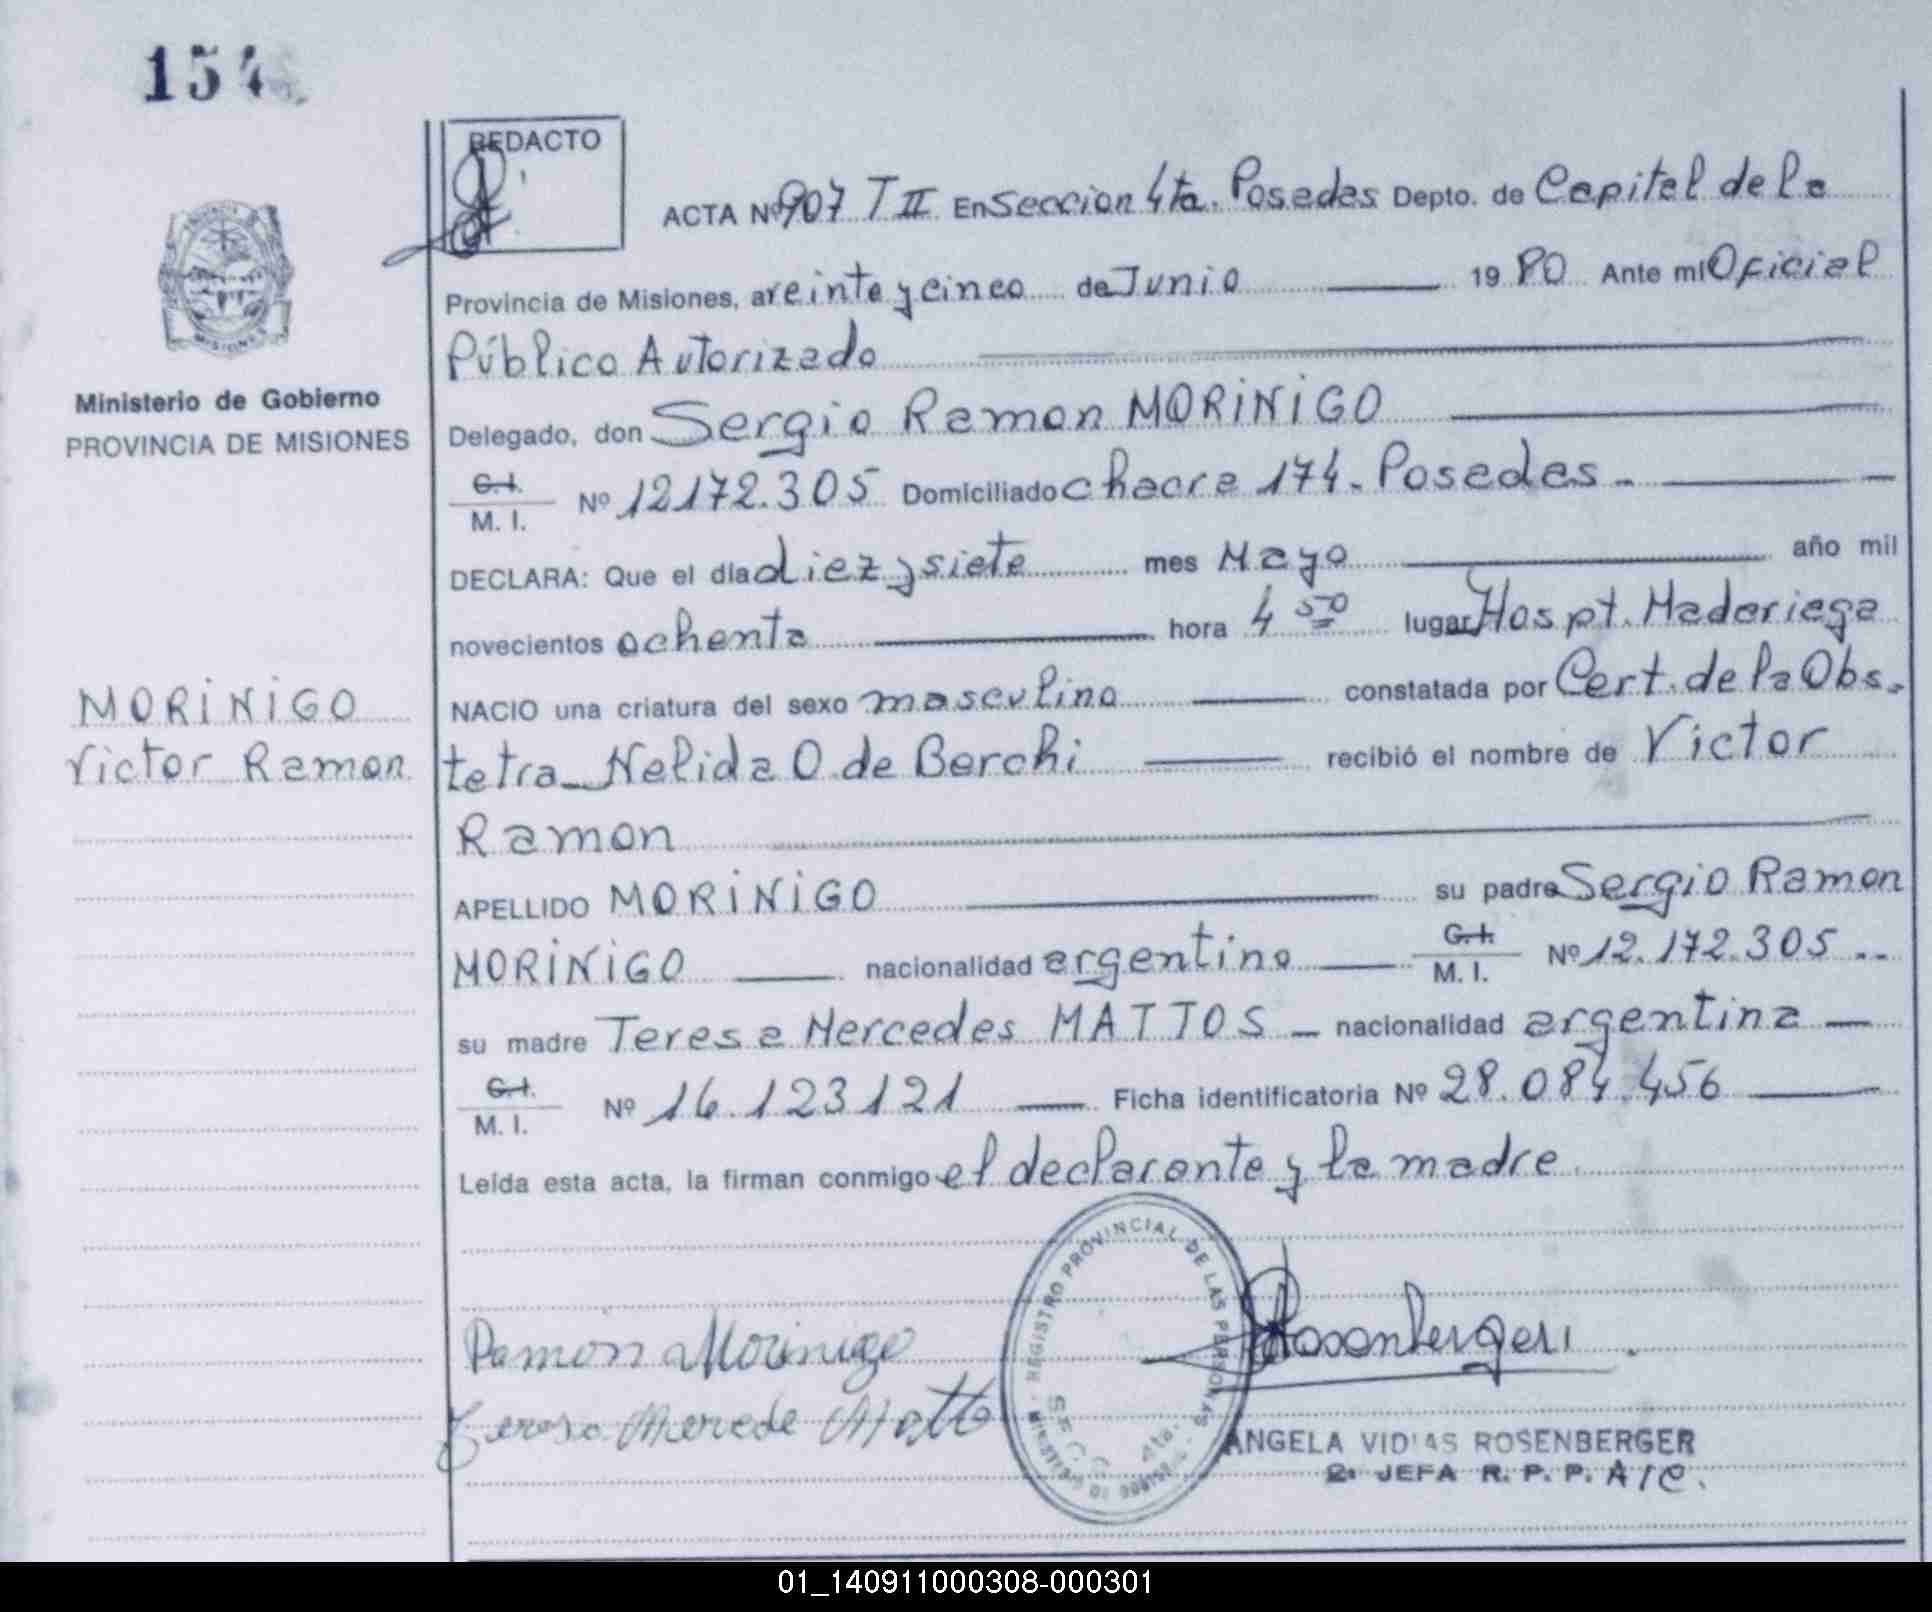 154
REDACTO
ACTA Nº 907 T II En Seccion 4ta. Posadas Depto. de Capital de la
Provincia de Misiones, a veinte y cinco de Junio 19 80 Ante mí Oficial
Público Autorizado
Ministerio de Gobierno
PROVINCIA DE MISIONES
Delegado, don Sergio Ramon MORINIGO
C. I.
M. I. Nº 12172.305 Domiciliado chacra 174. Posadas.
DECLARA: Que el día diez y siete mes Mayo año mil
novecientos ochenta hora 4 50 lugar Hospt. Madariaga
NACIO una criatura del sexo masculino constatada por Cert. de la Obs-
MORINIGO
Victor Ramon
tetra Nelida O. de Berchi recibió el nombre de Victor
Ramon
APELLIDO MORINIGO su padre Sergio Ramon
MORINIGO nacionalidad argentino C. I. M. I. Nº 12.172.305
su madre Teresa Mercedes MATTOS nacionalidad argentina
C. I.
M. I. Nº 16.123121 Ficha identificatoria Nº 28.084.456
Leída esta acta, la firman conmigo el declarante y la madre.
REGISTRO PROVINCIAL DE LAS PERSONAS
Ramon Morinigo
Rosenberger
Teresa Merede Matto
ANGELA ROSENBERGER
2ª JEFA R. P. P. A/C.
01_140911000308-000301